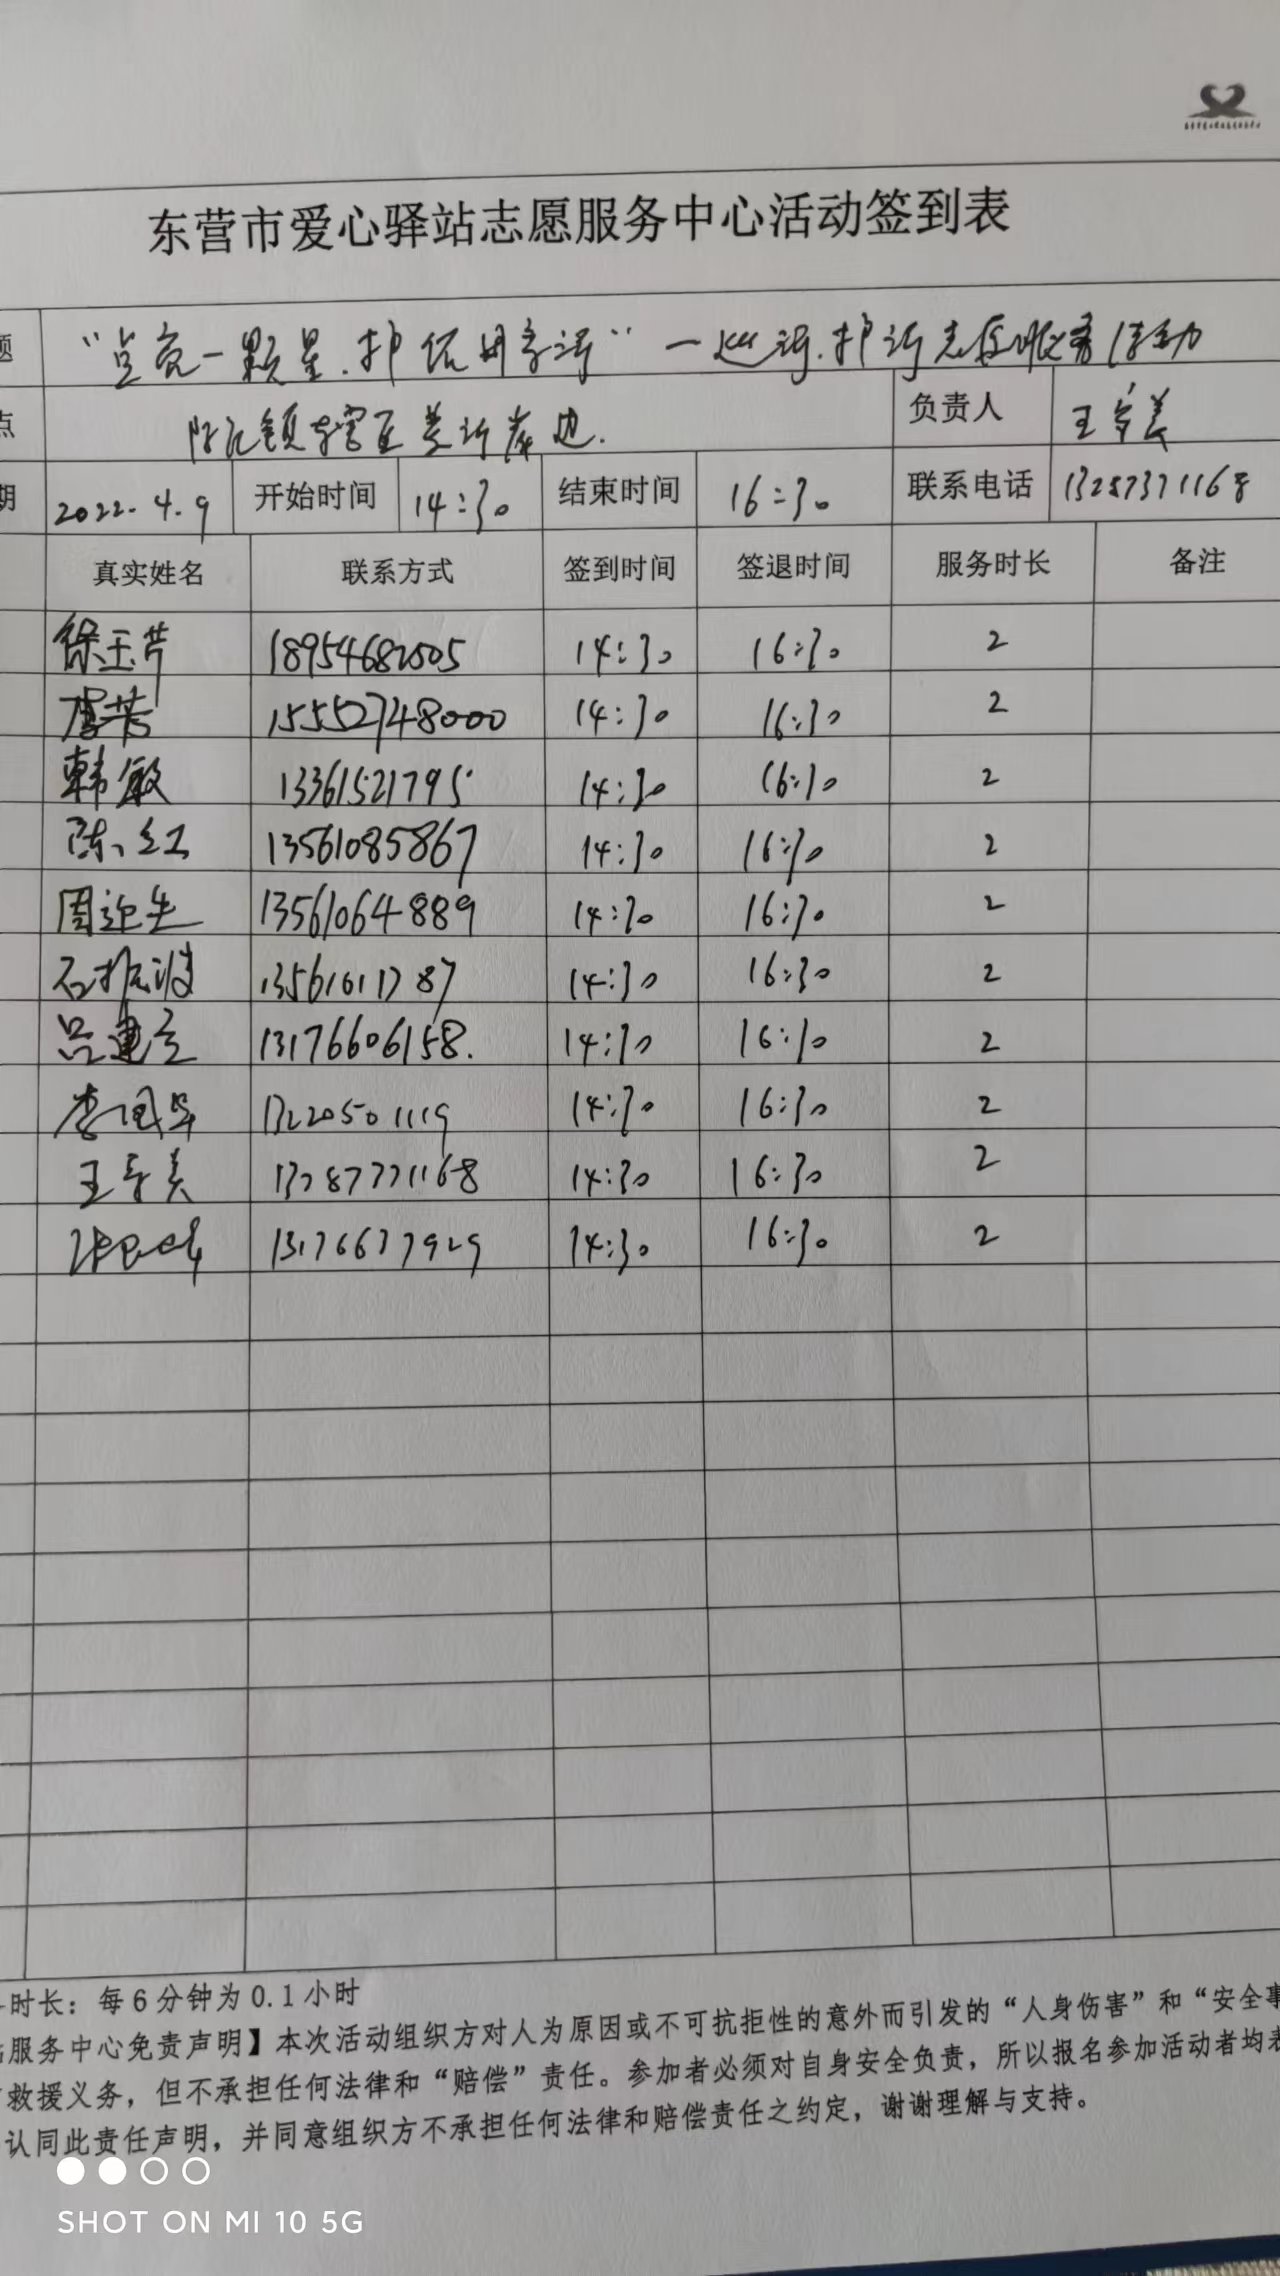 东营市爱心驿站志愿服务中心活动签到表
题 “点亮一颗星.护佑母亲河”一巡河.护河志愿服务活动
点 辖区黄河岸边. 负责人 王守美
期 2022.4.9 开始时间 14:30 结束时间 16:30 联系电话 13287371168
真实姓名 联系方式 签到时间 签退时间 服务时长 备注
徐玉芹 18954682505 14:30 16:30 2
15552748000 14:30 16:30 2
韩敏 13361521795 14:30 16:30 2
陈红 13561085867 14:30 16:30 2
周迎生 13561064889 14:30 16:30 2
石振波 13561611787 14:30 16:30 2
吕建立 13176606158. 14:30 16:30 2
李国华 13220501119 14:30 16:30 2
王守美 13287371168 14:30 16:30 2
13176677929 14:30 16:30 2
时长：每6分钟为0.1小时
服务中心免责声明】本次活动组织方对人为原因或不可抗拒性的意外而引发的“人身伤害”和“安全事
救援义务，但不承担任何法律和“赔偿”责任。参加者必须对自身安全负责，所以报名参加活动者均表
认同此责任声明，并同意组织方不承担任何法律和赔偿责任之约定，谢谢理解与支持。
SHOT ON MI 10 5G